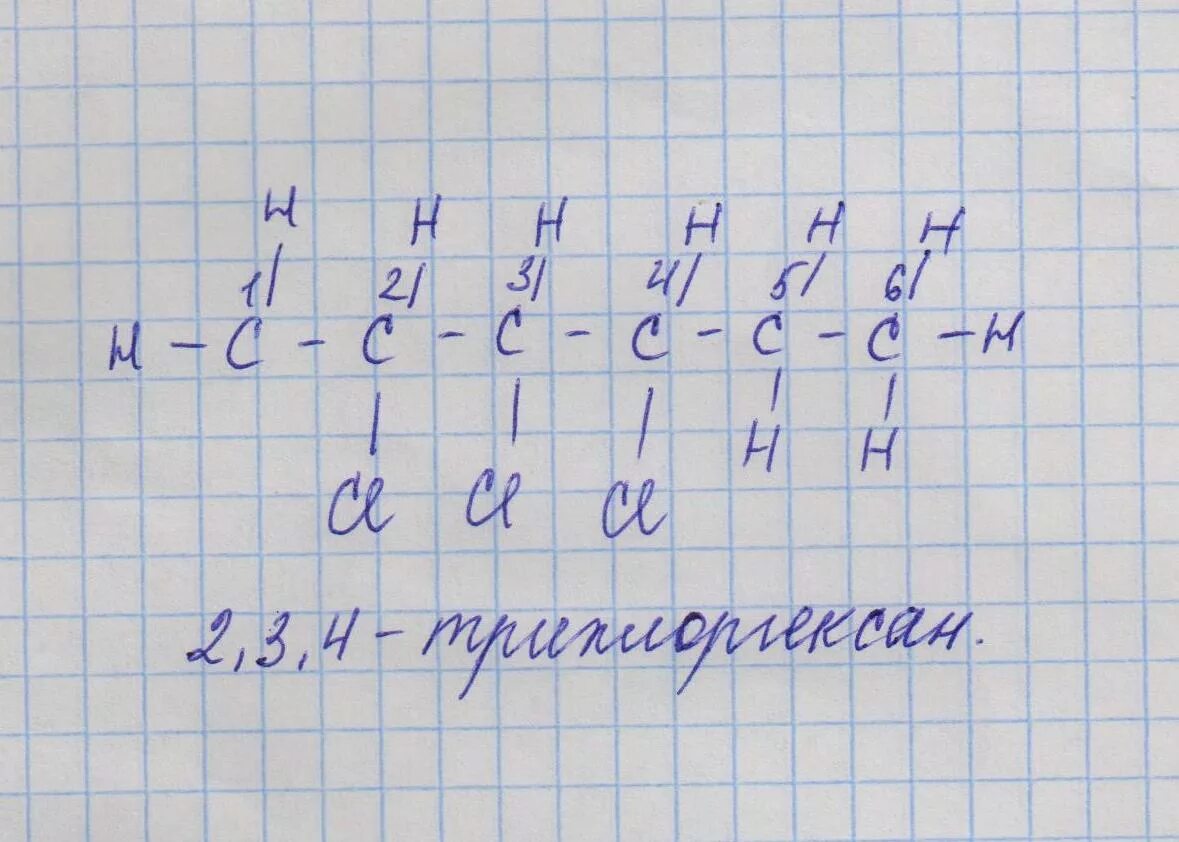 H H H H H H
1 2 3 4 5 6
H - C - C - C - C - C - C - H
H H
Cl Cl Cl
2,3,4 - трихлоргексан.